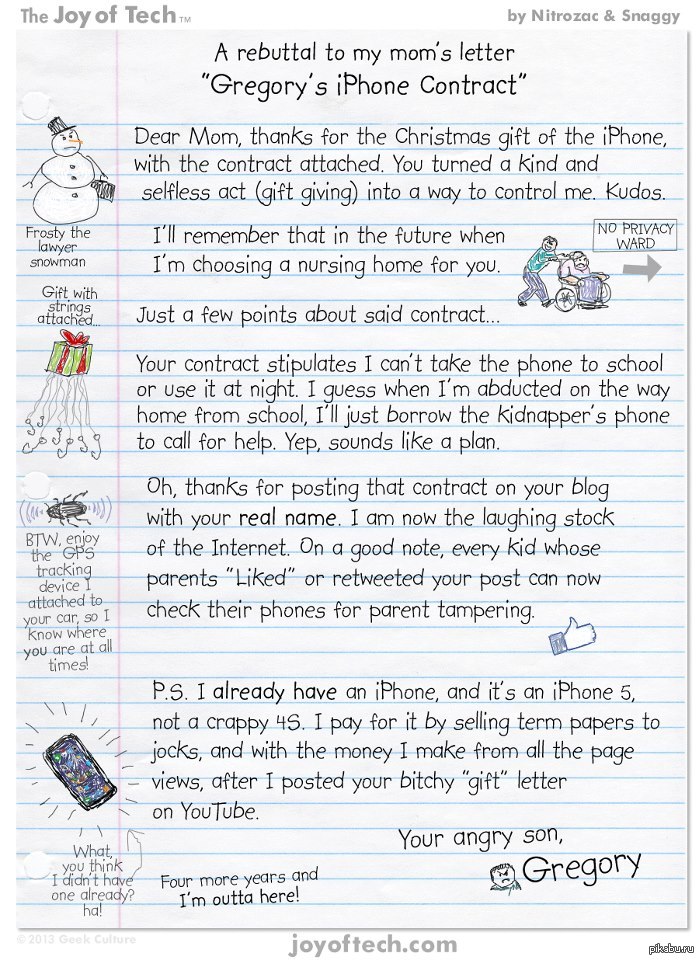 The Joy of Tech™
by Nitrozac & Snaggy
A rebuttal to my mom's letter
"Gregory's iPhone Contract"
Dear Mom, thanks for the Christmas gift of the iPhone,
with the contract attached. You turned a kind and
selfless act (gift giving) into a way to control me. Kudos.
Frosty the
lawyer
snowman
I'll remember that in the future when
I'm choosing a nursing home for you.
NO PRIVACY
WARD
Gift with
strings
attached...
Just a few points about said contract...
Your contract stipulates I can't take the phone to school
or use it at night. I guess when I'm abducted on the way
home from school, I'll just borrow the kidnapper's phone
to call for help. Yep, sounds like a plan.
Oh, thanks for posting that contract on your blog
with your real name. I am now the laughing stock
of the Internet. On a good note, every kid whose
parents "Liked" or retweeted your post can now
check their phones for parent tampering.
BTW, enjoy
the GPS
tracking
device I
attached to
your car, so I
know where
you are at all
times!
P.S. I already have an iPhone, and it's an iPhone 5,
not a crappy 4S. I pay for it by selling term papers to
jocks, and with the money I make from all the page
views, after I posted your bitchy "gift" letter
on YouTube.
What,
you think
I didn't have
one already?
ha!
Your angry son,
Gregory
Four more years and
I'm outta here!
© 2013 Geek Culture
joyoftech.com
pikabu.ru